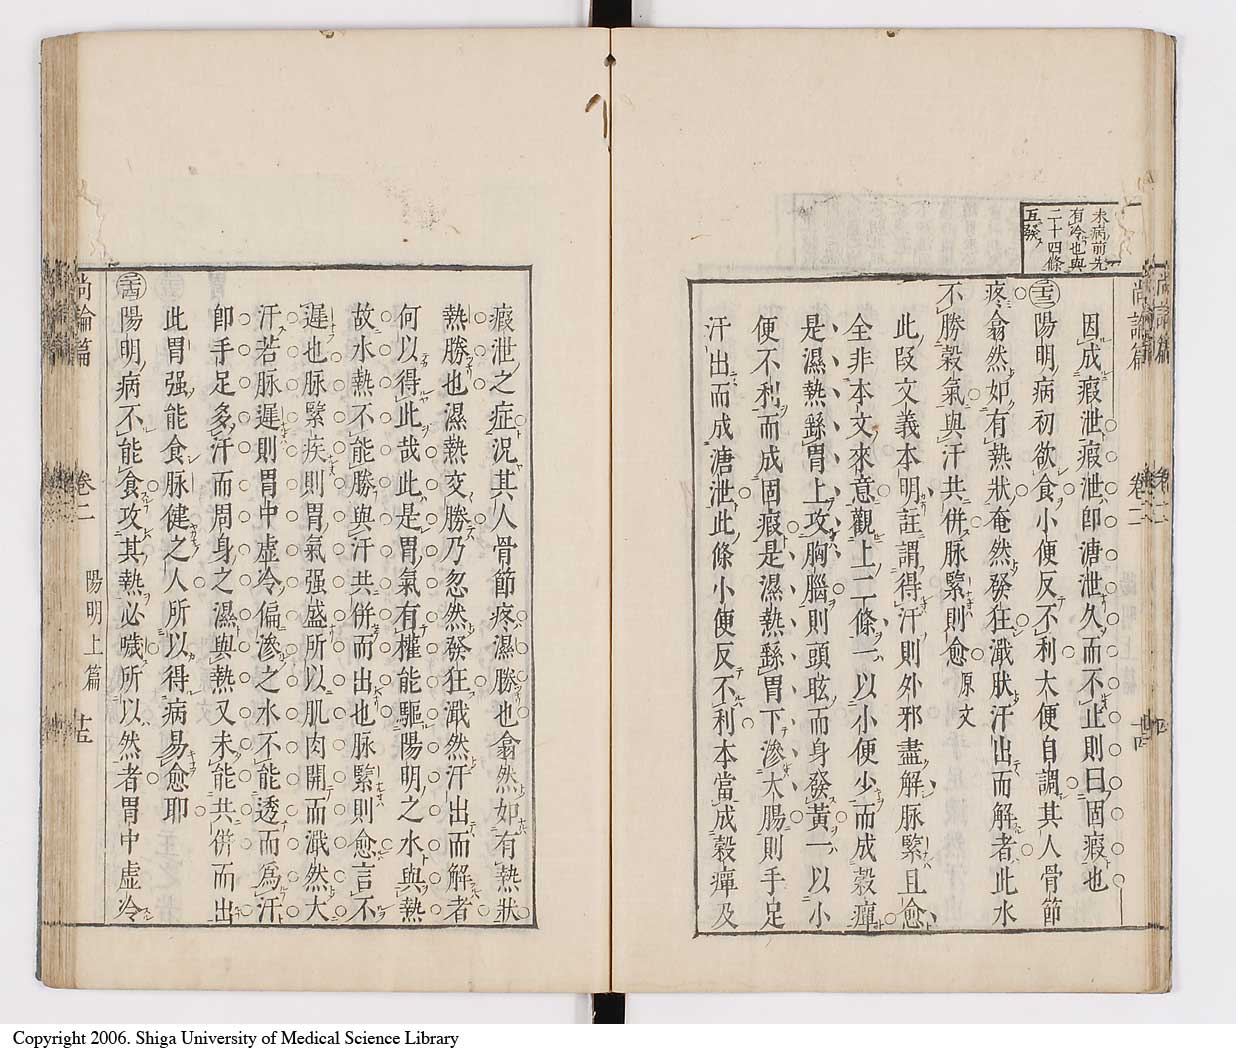 未病前先
有冷也與
二十四條
互發
尚論篇 卷二 廿四
因成瘕泄瘕泄卽溏泄久而不止則曰固瘕也
陽明病初欲食小便反不利大便自調其人骨節
疼翕然如有熱狀奄然發狂濈然汗出而解者此水
不勝穀氣與汗共併脉緊則愈 原文
此段文義本明註謂得汗則外邪盡解脉緊且愈
全非本文來意觀上二條一以小便少而成穀癉
是濕熱繇胃上攻胸腦則頭眩而身發黃一以小
便不利而成固瘕是濕熱繇胃下滲大腸則手足
汗出而成溏泄此條小便反不利本當成穀癉及
瘕泄之症況其人骨節疼濕勝也翕然如有熱狀
熱勝也濕熱交勝乃忽然發狂濈然汗出而解者
何以得此哉此是胃氣有權能驅陽明之水與熱
故水熱不能勝與汗共併而出也脉緊則愈言不
遲也脉緊疾則胃氣强盛所以肌肉開而濈然大
汗若脉遲則胃中虛冷偏滲之水不能透而爲汗
卽手足多汗而周身之濕與熱又未能共併而出
此胃强能食脉健之人所以得病易愈耶
陽明病不能食攻其熱必噦所以然者胃中虛冷
尚論篇 卷二 陽明上篇 廿五
Copyright 2006. Shiga University of Medical Science Library